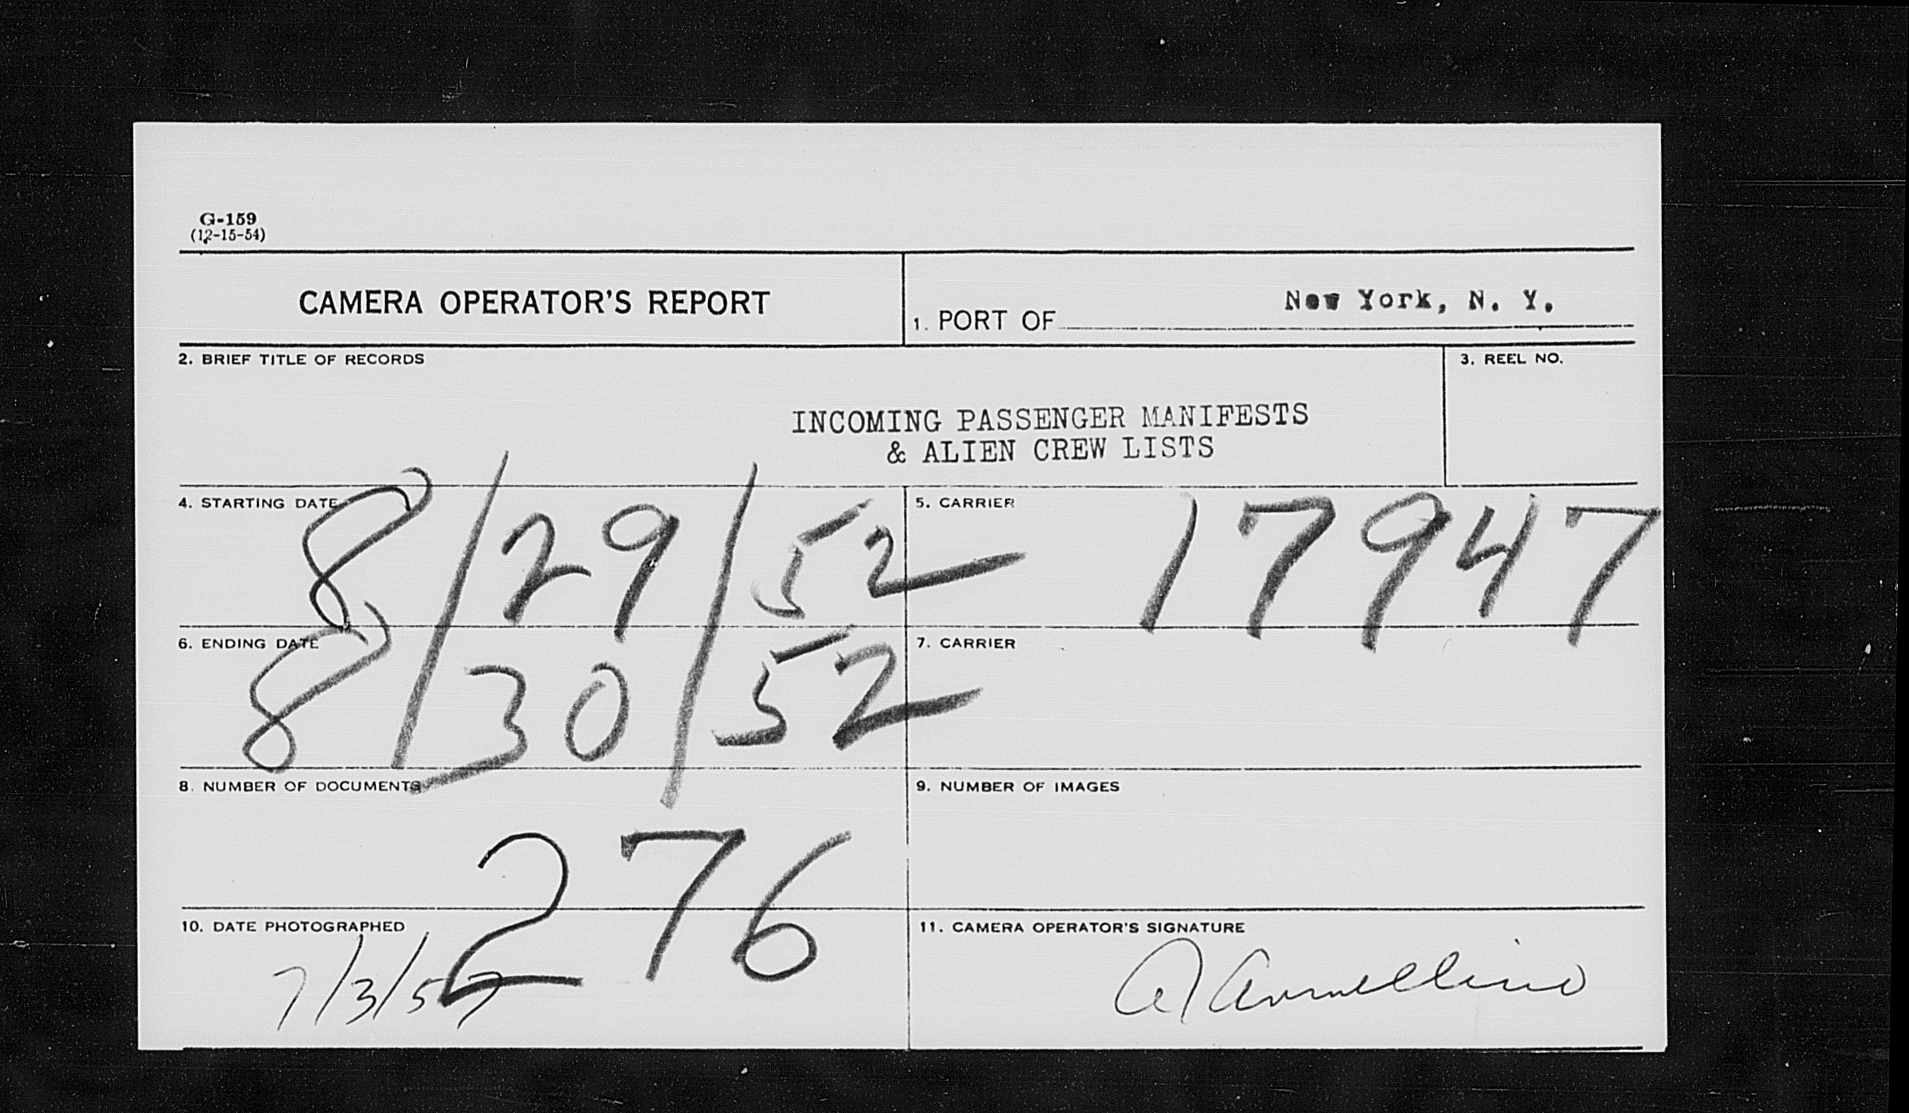 G-159
(12-15-54)
CAMERA OPERATOR'S REPORT
1. PORT OF New York, N. Y.
2. BRIEF TITLE OF RECORDS
3. REEL NO.
INCOMING PASSENGER MANIFESTS
& ALIEN CREW LISTS
4. STARTING DATE
8/29/52
5. CARRIER
17947
6. ENDING DATE
8/30/52
7. CARRIER
8. NUMBER OF DOCUMENTS
276
9. NUMBER OF IMAGES
10. DATE PHOTOGRAPHED
7/3/57
11. CAMERA OPERATOR'S SIGNATURE